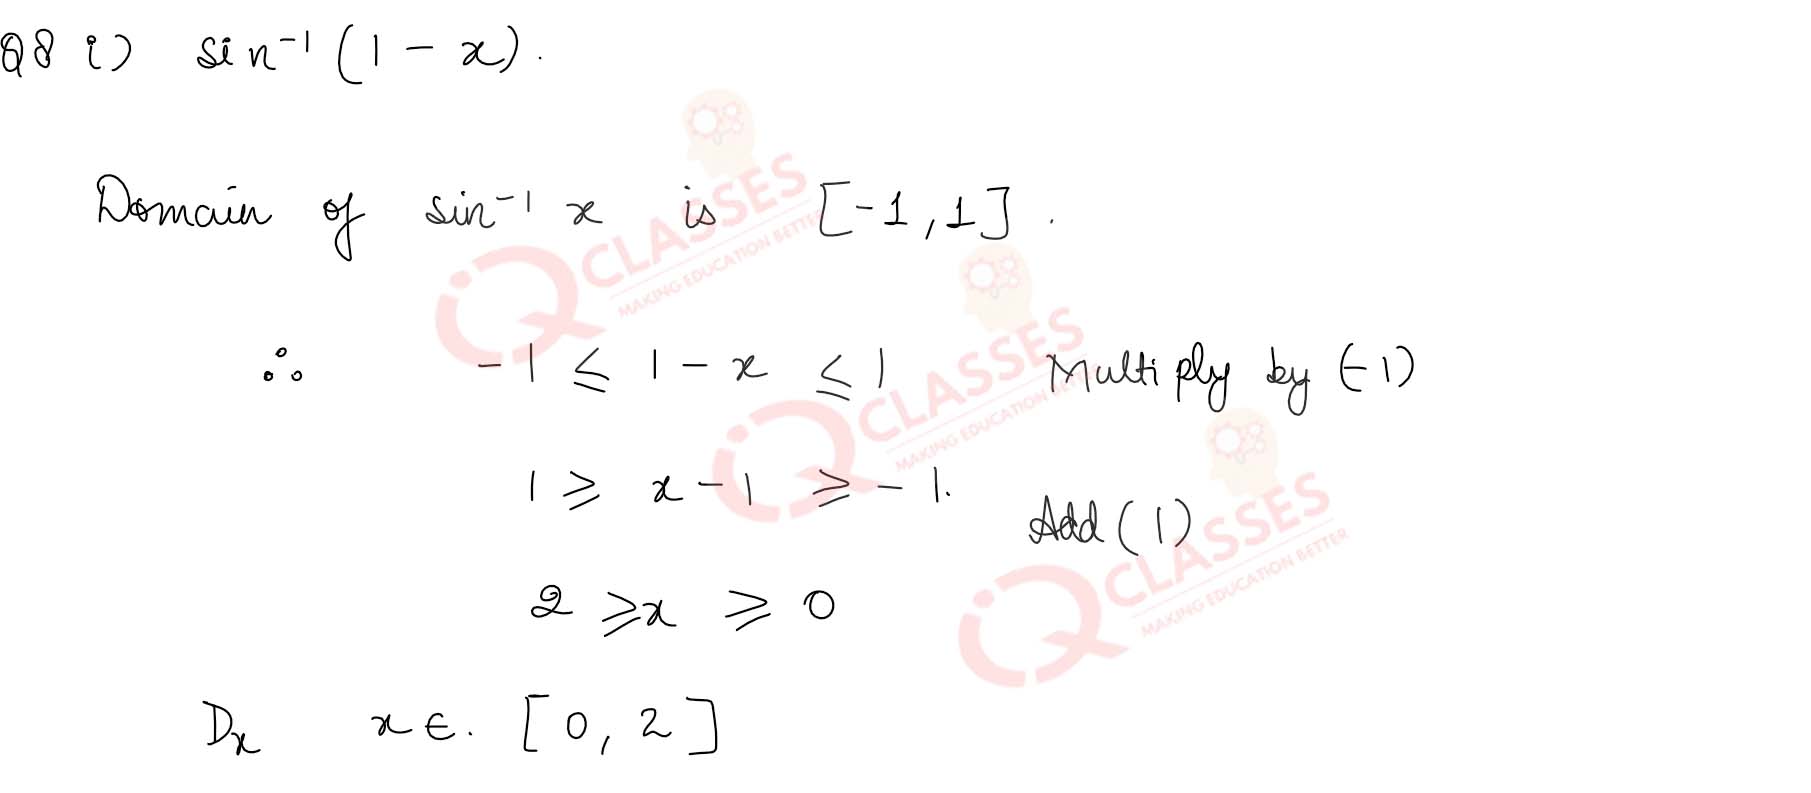 Q8 i) sin⁻¹ (1 - x).
Domain of sin⁻¹ x is [-1, 1].
∴ -1 ≤ 1 - x ≤ 1 Multiply by (-1)
1 ≥ x - 1 ≥ -1.
Add (1)
2 ≥ x ≥ 0
Dx x ∈. [0, 2]
iQ CLASSES
MAKING EDUCATION BETTER
iQ CLASSES
MAKING EDUCATION BETTER
iQ CLASSES
MAKING EDUCATION BETTER